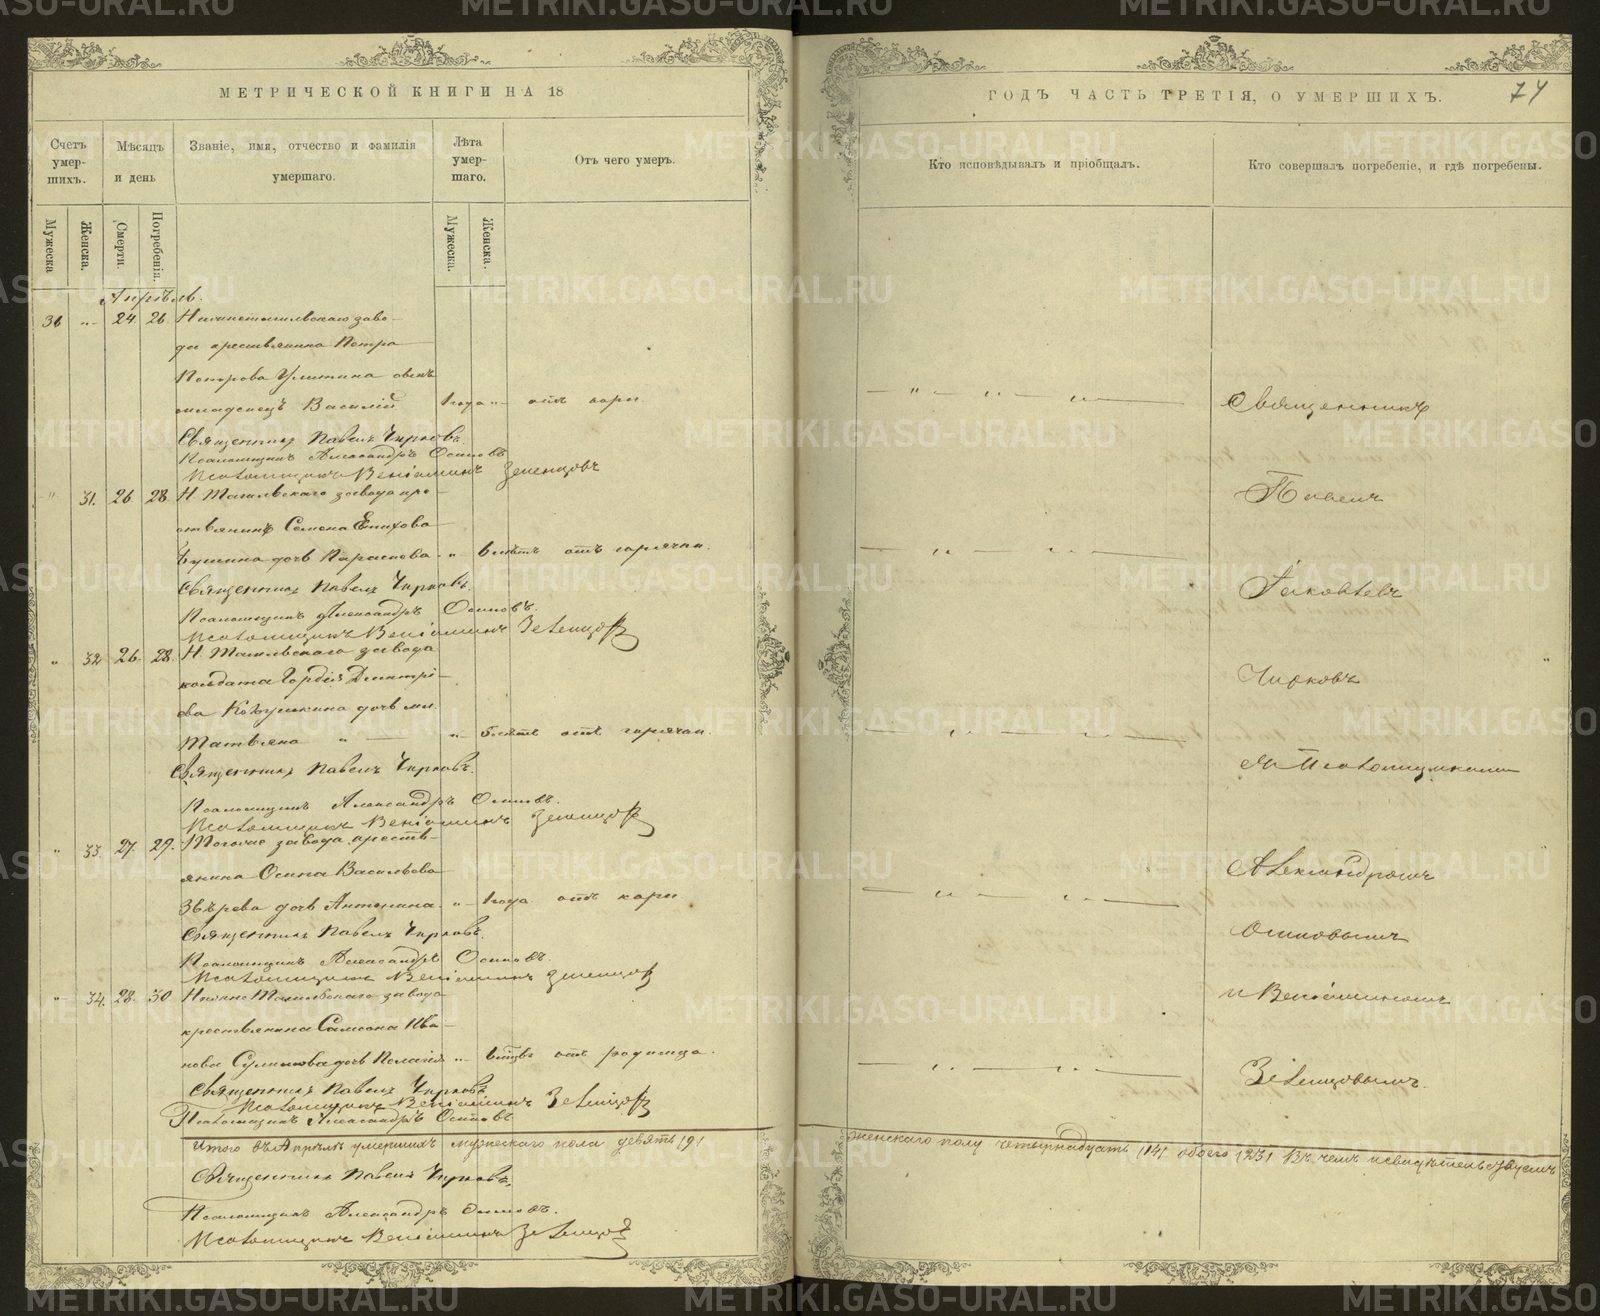 МЕТРИЧЕСКОЙ КНИГИ НА 18
Счетъ умер-шихъ.
Мѣсяцъ и день
Званіе, имя, отчество и фамилія умершаго.
Лѣта умер-шаго.
Отъ чего умеръ.
Мужеска
Женска.
Смерти.
Погребенія.
Мужеска.
Женска.
Апрѣль.
24. 26. Нижнетагильскаго заво-
да крестьянина Петра
Петрова сынъ
младенецъ Василій 1 года отъ кори
Священникъ Павелъ Чирковъ.
Псаломщикъ Александръ Осиповъ
Псаломщикъ Веніаминъ Зеленцовъ
" 31. 26 28. Н. Тагильскаго завода кре-
стьянина Семена
дочь Параскева " отъ горячки.
Священникъ Павелъ Чирковъ.
Псаломщикъ Александръ Осиповъ.
Псаломщикъ Веніаминъ Зеленцовъ
" 32 26. 28. Н. Тагильскаго завода
солдата Гордія Дмитрі-
ева дочь мл.
Татьяна " " отъ горячки.
Священникъ Павелъ Чирковъ.
Псаломщикъ Александръ Осиповъ.
Псаломщикъ Веніаминъ Зеленцовъ
" 33. 27. 29. Тогоже завода кресть-
янина Осипа Васильева
Звѣрева дочь Антонина " 1 года отъ кори
Священникъ Павелъ Чирковъ.
Псаломщикъ Александръ Осиповъ.
Псаломщикъ Веніаминъ Зеленцовъ
" 34. 28. 30 Нижне Тагильскаго завода
крестьянина Самсона Ива-
нова дочь Пелагія " отъ родимца.
Священникъ Павелъ Чирковъ
Псаломщикъ Веніаминъ Зеленцовъ
Псаломщикъ Александръ Осиповъ
Итого въ Апрѣлѣ умершихъ мужескаго пола девять (9)
Священникъ Павелъ Чирковъ.
Псаломщикъ Александръ Осиповъ.
Псаломщикъ Веніаминъ Зеленцовъ
ГОДЪ ЧАСТЬ ТРЕТІЯ, О УМЕРШИХЪ.
74
Кто исповѣдывалъ и пріобщалъ.
Кто совершалъ погребеніе, и гдѣ погребены.
Священникъ
Павелъ
Іаковлевъ
Чирковъ
съ Псаломщиками
Александромъ
Осиповымъ
и Веніаминомъ
Зеленцовымъ.
женскаго полу четырнадцать (14) обоего (23) въ чемъ и свидѣтельствуемъ
METRIKI.GASO-URAL.RU